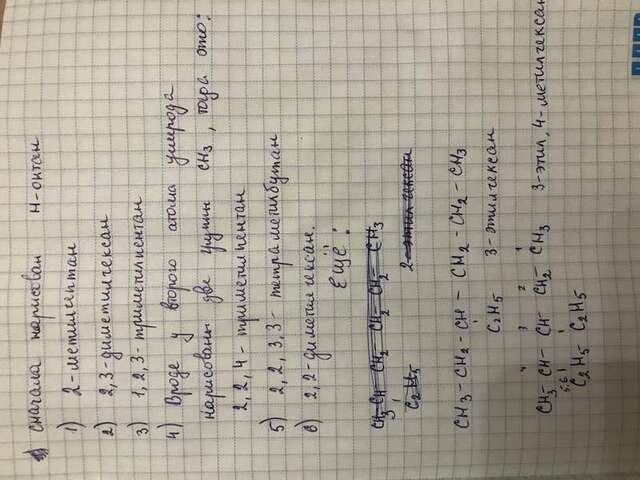 сначала нарисован н-октан
1) 2-метилгептан
2) 2,3-диметилгексан
3) 1,2,3-триметилпентан
4) Вроде у второго атома углерода
нарисованы две группы CH3, тогда это:
2,2,4-триметилпентан
5) 2,2,3,3-тетраметилбутан
6) 2,2-диметилгексан.
ЕЩЁ:
CH3-CH CH2 CH2-CH2- CH3
C2H5 2-этилгексан
CH3-CH2-CH-CH2-CH2-CH3
C2H5 3-этилгексан
4 3 2 1
CH3-CH-CH-CH2-CH3 3-этил,4-метилгексан
5.6
C2H5 C2H5